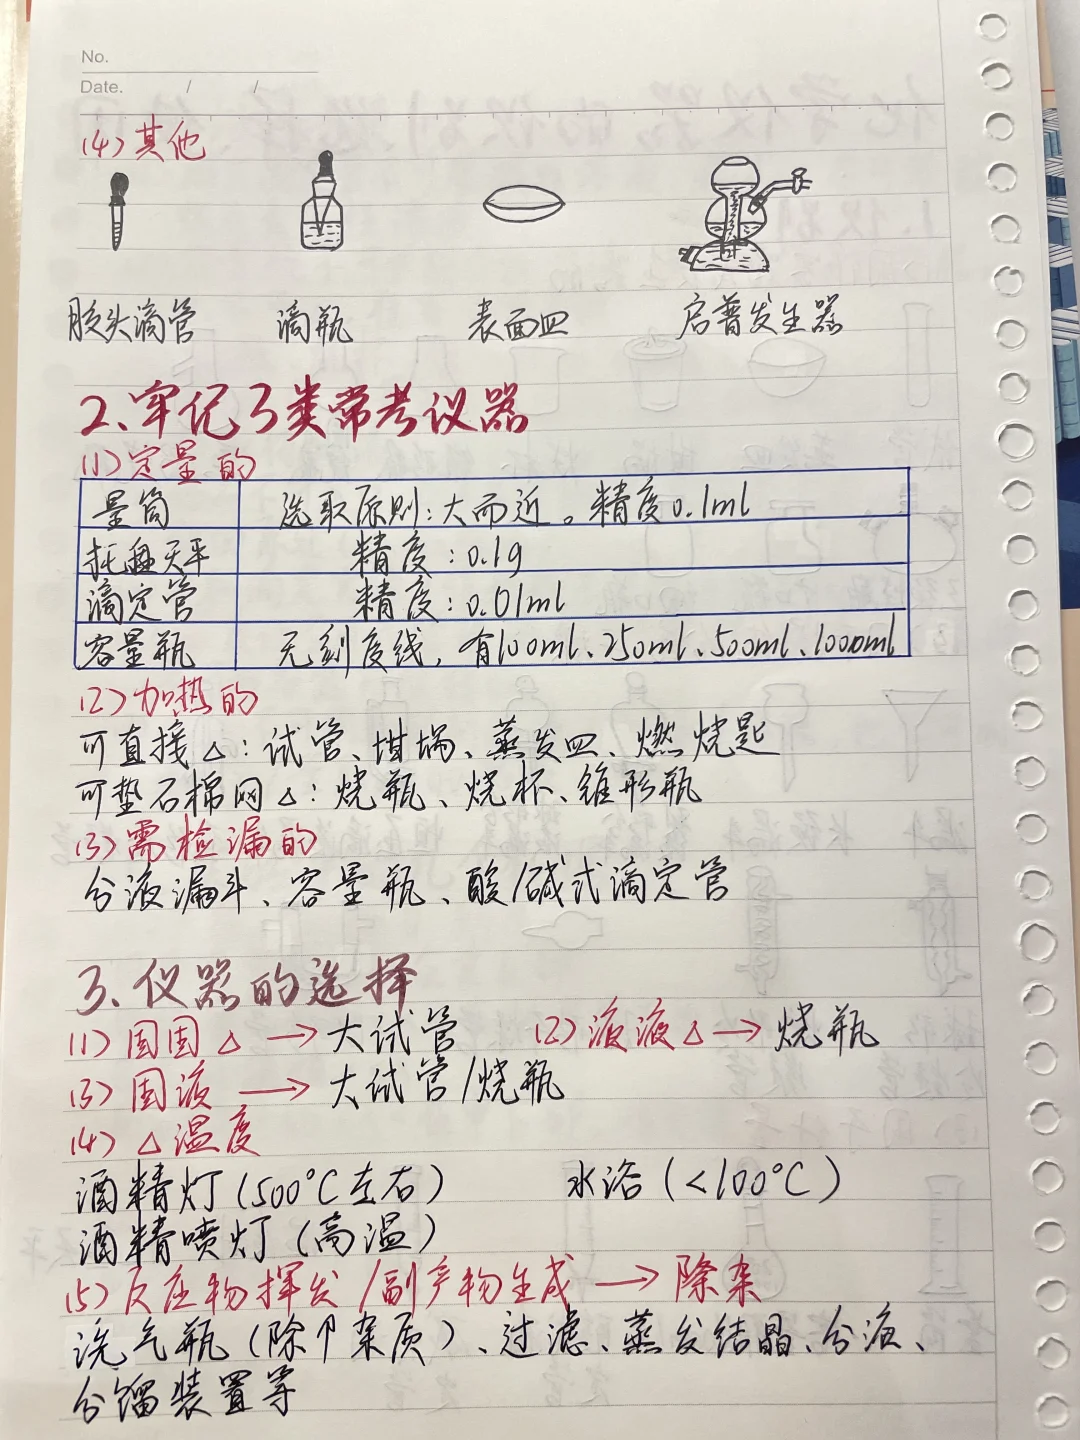 No.
Date. / /
(4)其他
胶头滴管 滴瓶 表面皿 启普发生器
2、牢记3类常考议器
(1)定量的
量筒 选取原则:大而近。精度0.1ml
托盘天平 精度:0.1g
滴定管 精度:0.01ml
容量瓶 无刻度线,有100ml、250ml、500ml、1000ml
(2)加热的
可直接△:试管、坩埚、蒸发皿、燃烧匙
可垫石棉网△:烧瓶、烧杯、锥形瓶
(3)需检漏的
分液漏斗、容量瓶、酸/碱式滴定管
3、仪器的选择
(1)固固△→大试管 (2)液液△→烧瓶
(3)固液→大试管/烧瓶
(4)△温度
酒精灯(500°C左右) 水浴(<100°C)
酒精喷灯(高温)
(5)反应物挥发/副产物生成→除杂
洗气瓶(除↑杂质)、过滤、蒸发结晶、分液、
分馏装置等